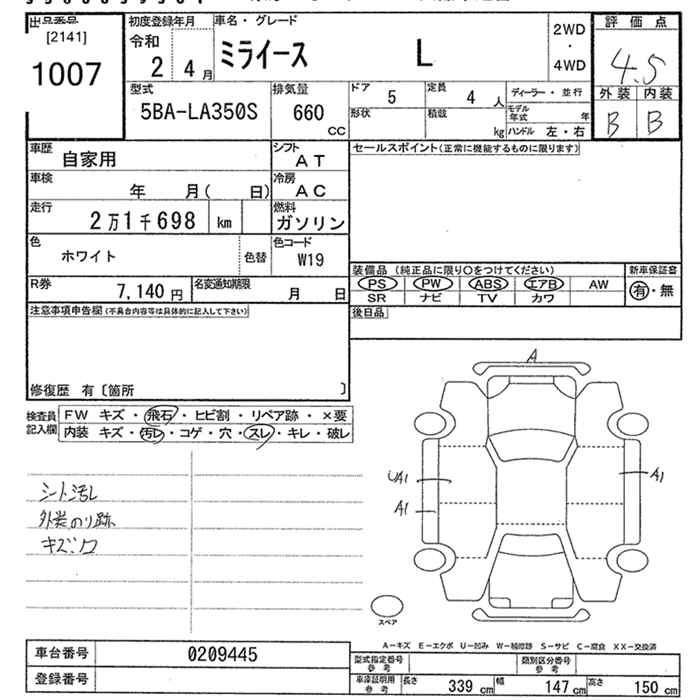 出品番号
[2141]
1007
初度登録年月
令和
2 4 月
車名・グレード
ミライース L
2WD
・
4WD
評価点
4.5
外装 内装
B B
型式
5BA-LA350S
排気量
660
CC
ドア
5
定員
4 人
ディーラー・並行
形状
積載
kg
モデル年式
年
ハンドル 左・右
車歴
自家用
シフト
AT
車検
年 月( 日)
冷房
AC
走行
2万1千698 km
燃料
ガソリン
色
ホワイト
色替
色コード
W19
R券
7,140 円
名変通知期限
月 日
セールスポイント(正常に機能するものに限ります)
装備品 (純正品に限り○をつけてください)
新車保証書
PS PW ABS エアB AW
SR ナビ TV カワ
有・無
後日品
注意事項申告欄(不具合内容等は具体的に記入して下さい)
修復歴 有〔箇所 〕
検査員記入欄
FW キズ・飛石・ヒビ割・リペア跡・×要
内装 キズ・汚レ・コゲ・穴・スレ・キレ・破レ
シート汚レ
外装のり跡
キズ
A
UA1
A1
A1
スペア
A-キズ E-エクボ U-凹み W-補修跡 S-サビ C-腐食 XX-交換済
車台番号
0209445
登録番号
型式指定番号
参考
類別区分番号
参考
車庫証明用
参考
長さ 339 cm 幅 147 cm 高さ 150 cm